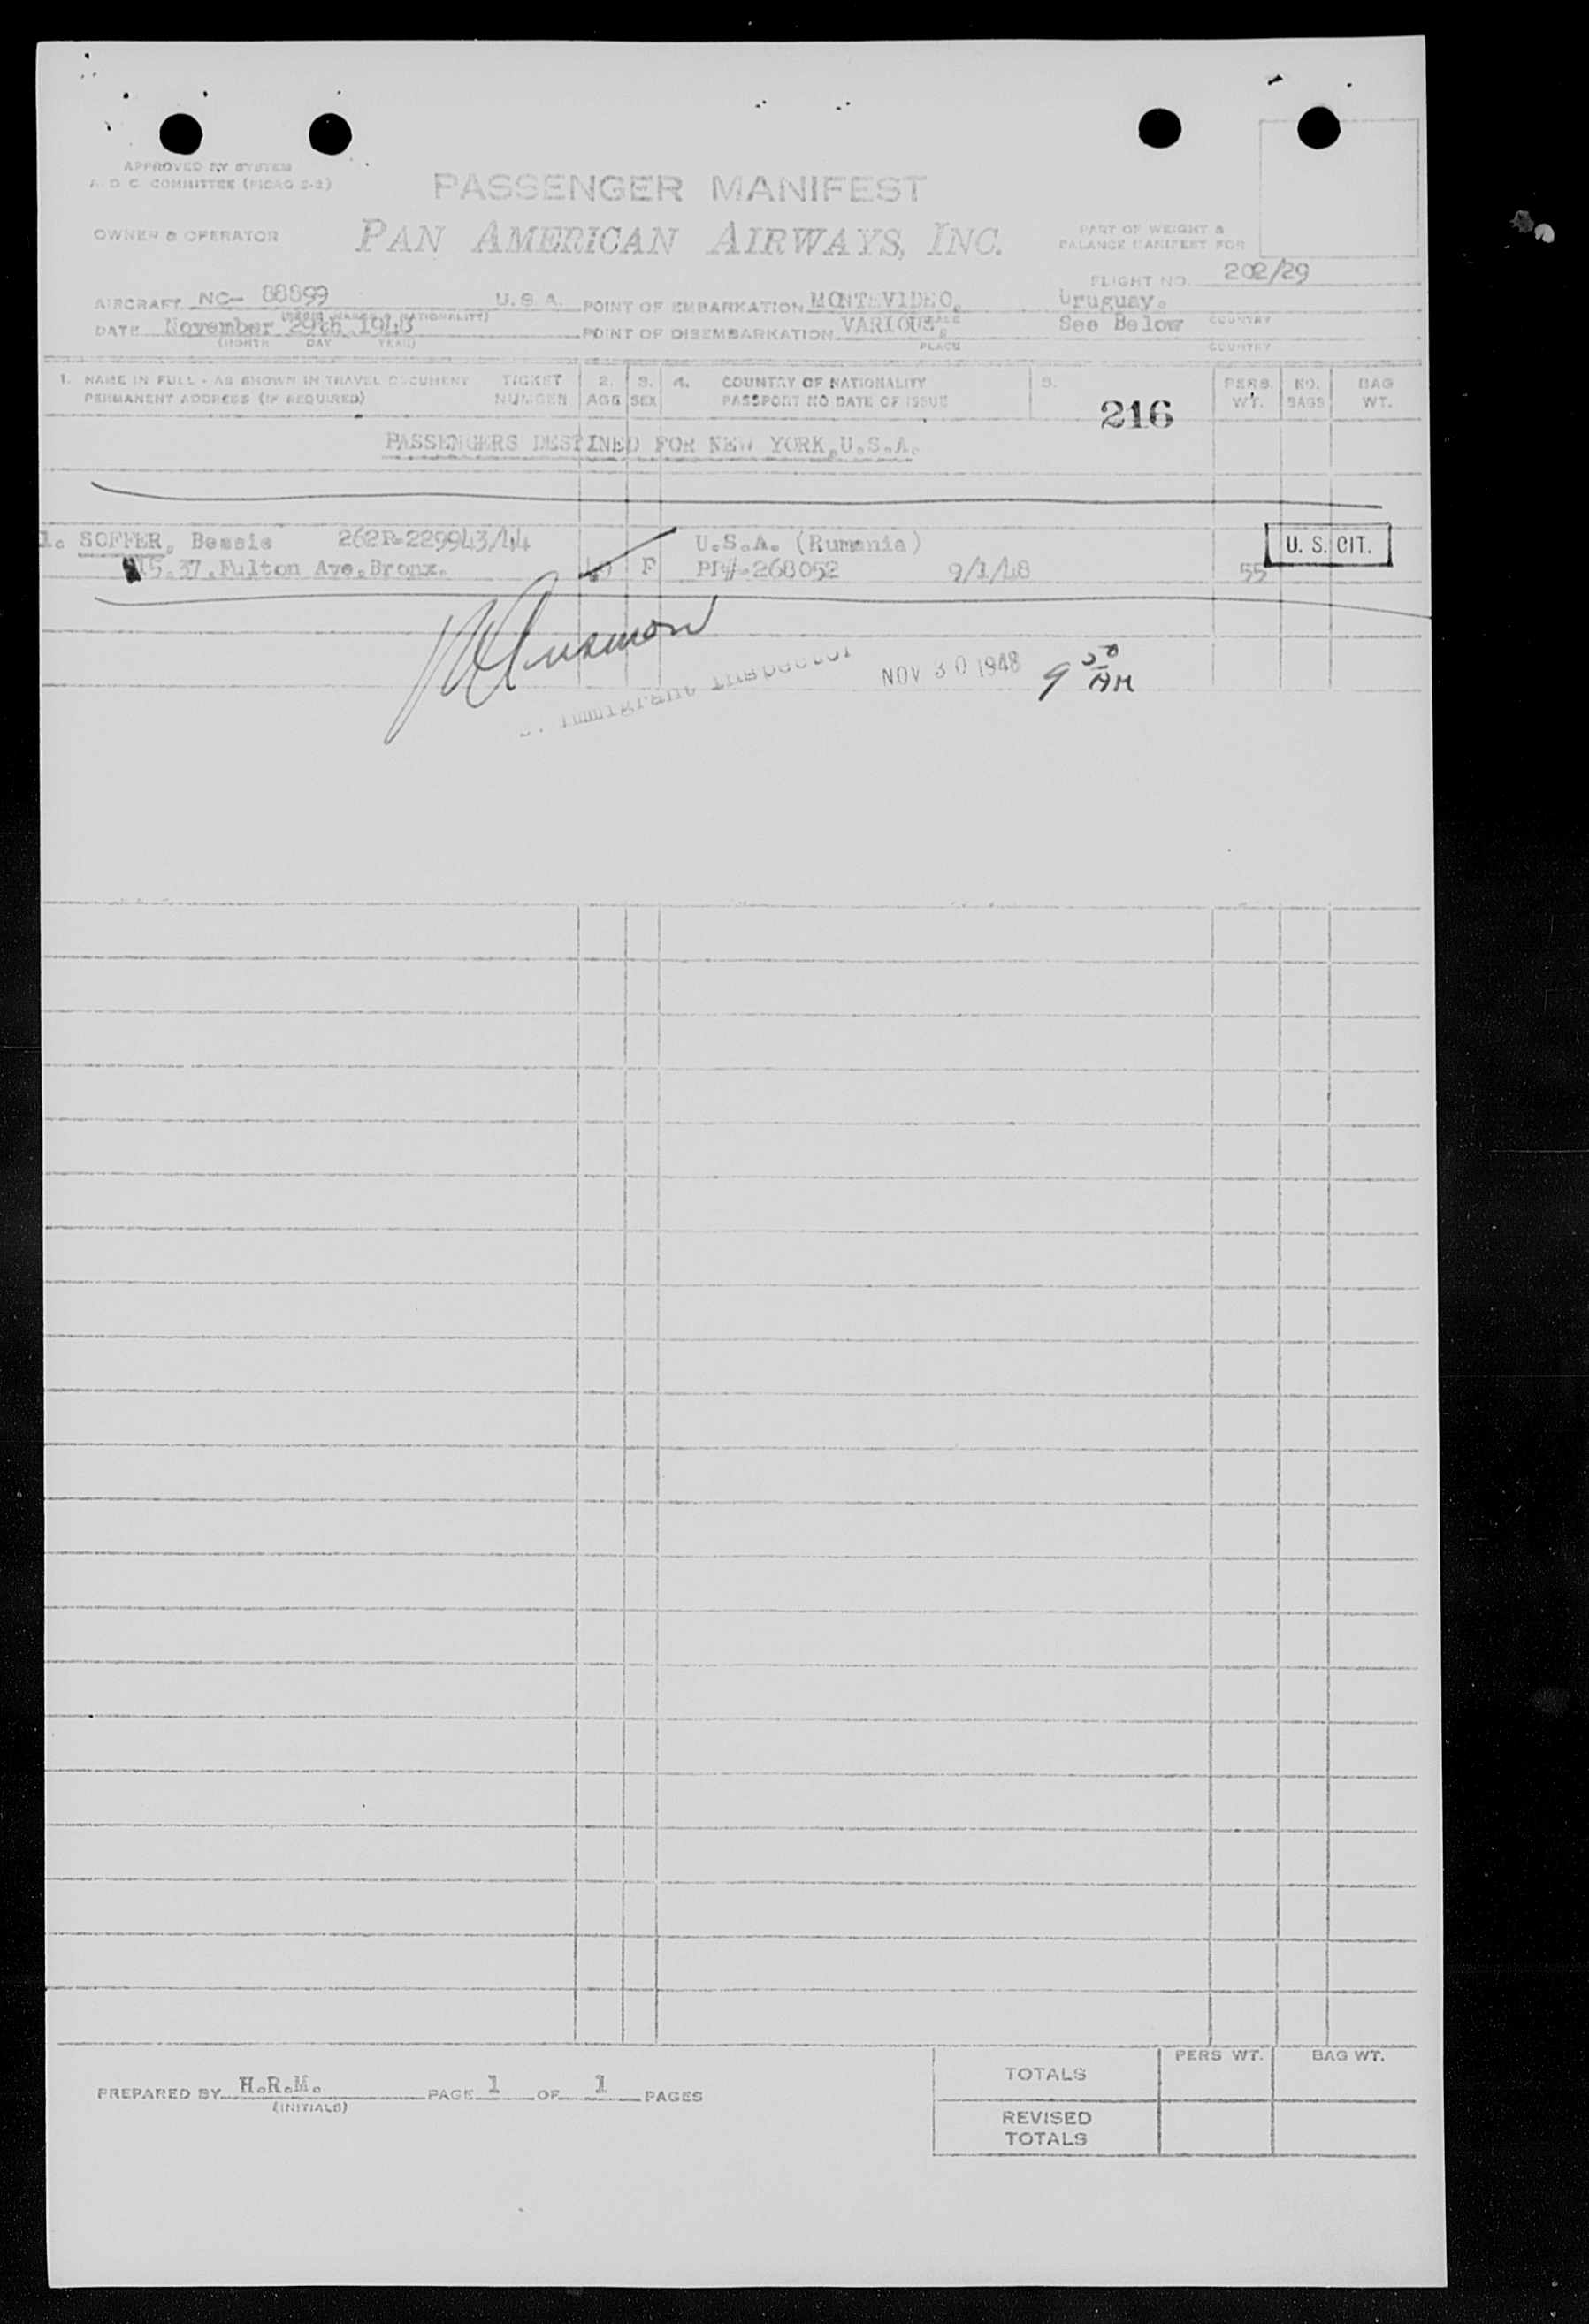 APPROVED BY SYSTEM
A. D. C. COMMITTEE (PICAO 2-2)
PASSENGER MANIFEST
OWNER & OPERATOR
PAN AMERICAN AIRWAYS, INC.
PART OF WEIGHT &
BALANCE MANIFEST FOR
FLIGHT NO. 202/29
AIRCRAFT NC- 88899 U. S. A. POINT OF EMBARKATION MONTEVIDEO. Uruguay.
DATE November 29th 1948 POINT OF DISEMBARKATION VARIOUS. See Below
(MONTH DAY YEAR) PLACE COUNTRY
1. NAME IN FULL - AS SHOWN IN TRAVEL DOCUMENT TICKET 2. 3. 4. COUNTRY OF NATIONALITY 5. PERS. NO. BAG
PERMANENT ADDRESS (IF REQUIRED) NUMBER AGE SEX PASSPORT NO DATE OF ISSUE WT. BAGS WT.
216
PASSENGERS DESTINED FOR NEW YORK, U.S.A.
1. SOFFER, Bessie 262R-229943/44 U.S.A. (Rumania) U. S. CIT.
15.37.Fulton Ave.Bronx. F PP#-268052 9/1/48 55
Immigrant Inspector NOV 30 1948 9 50 AM
PREPARED BY H.R.M. PAGE 1 OF 1 PAGES
(INITIALS)
PERS WT. BAG WT.
TOTALS
REVISED
TOTALS